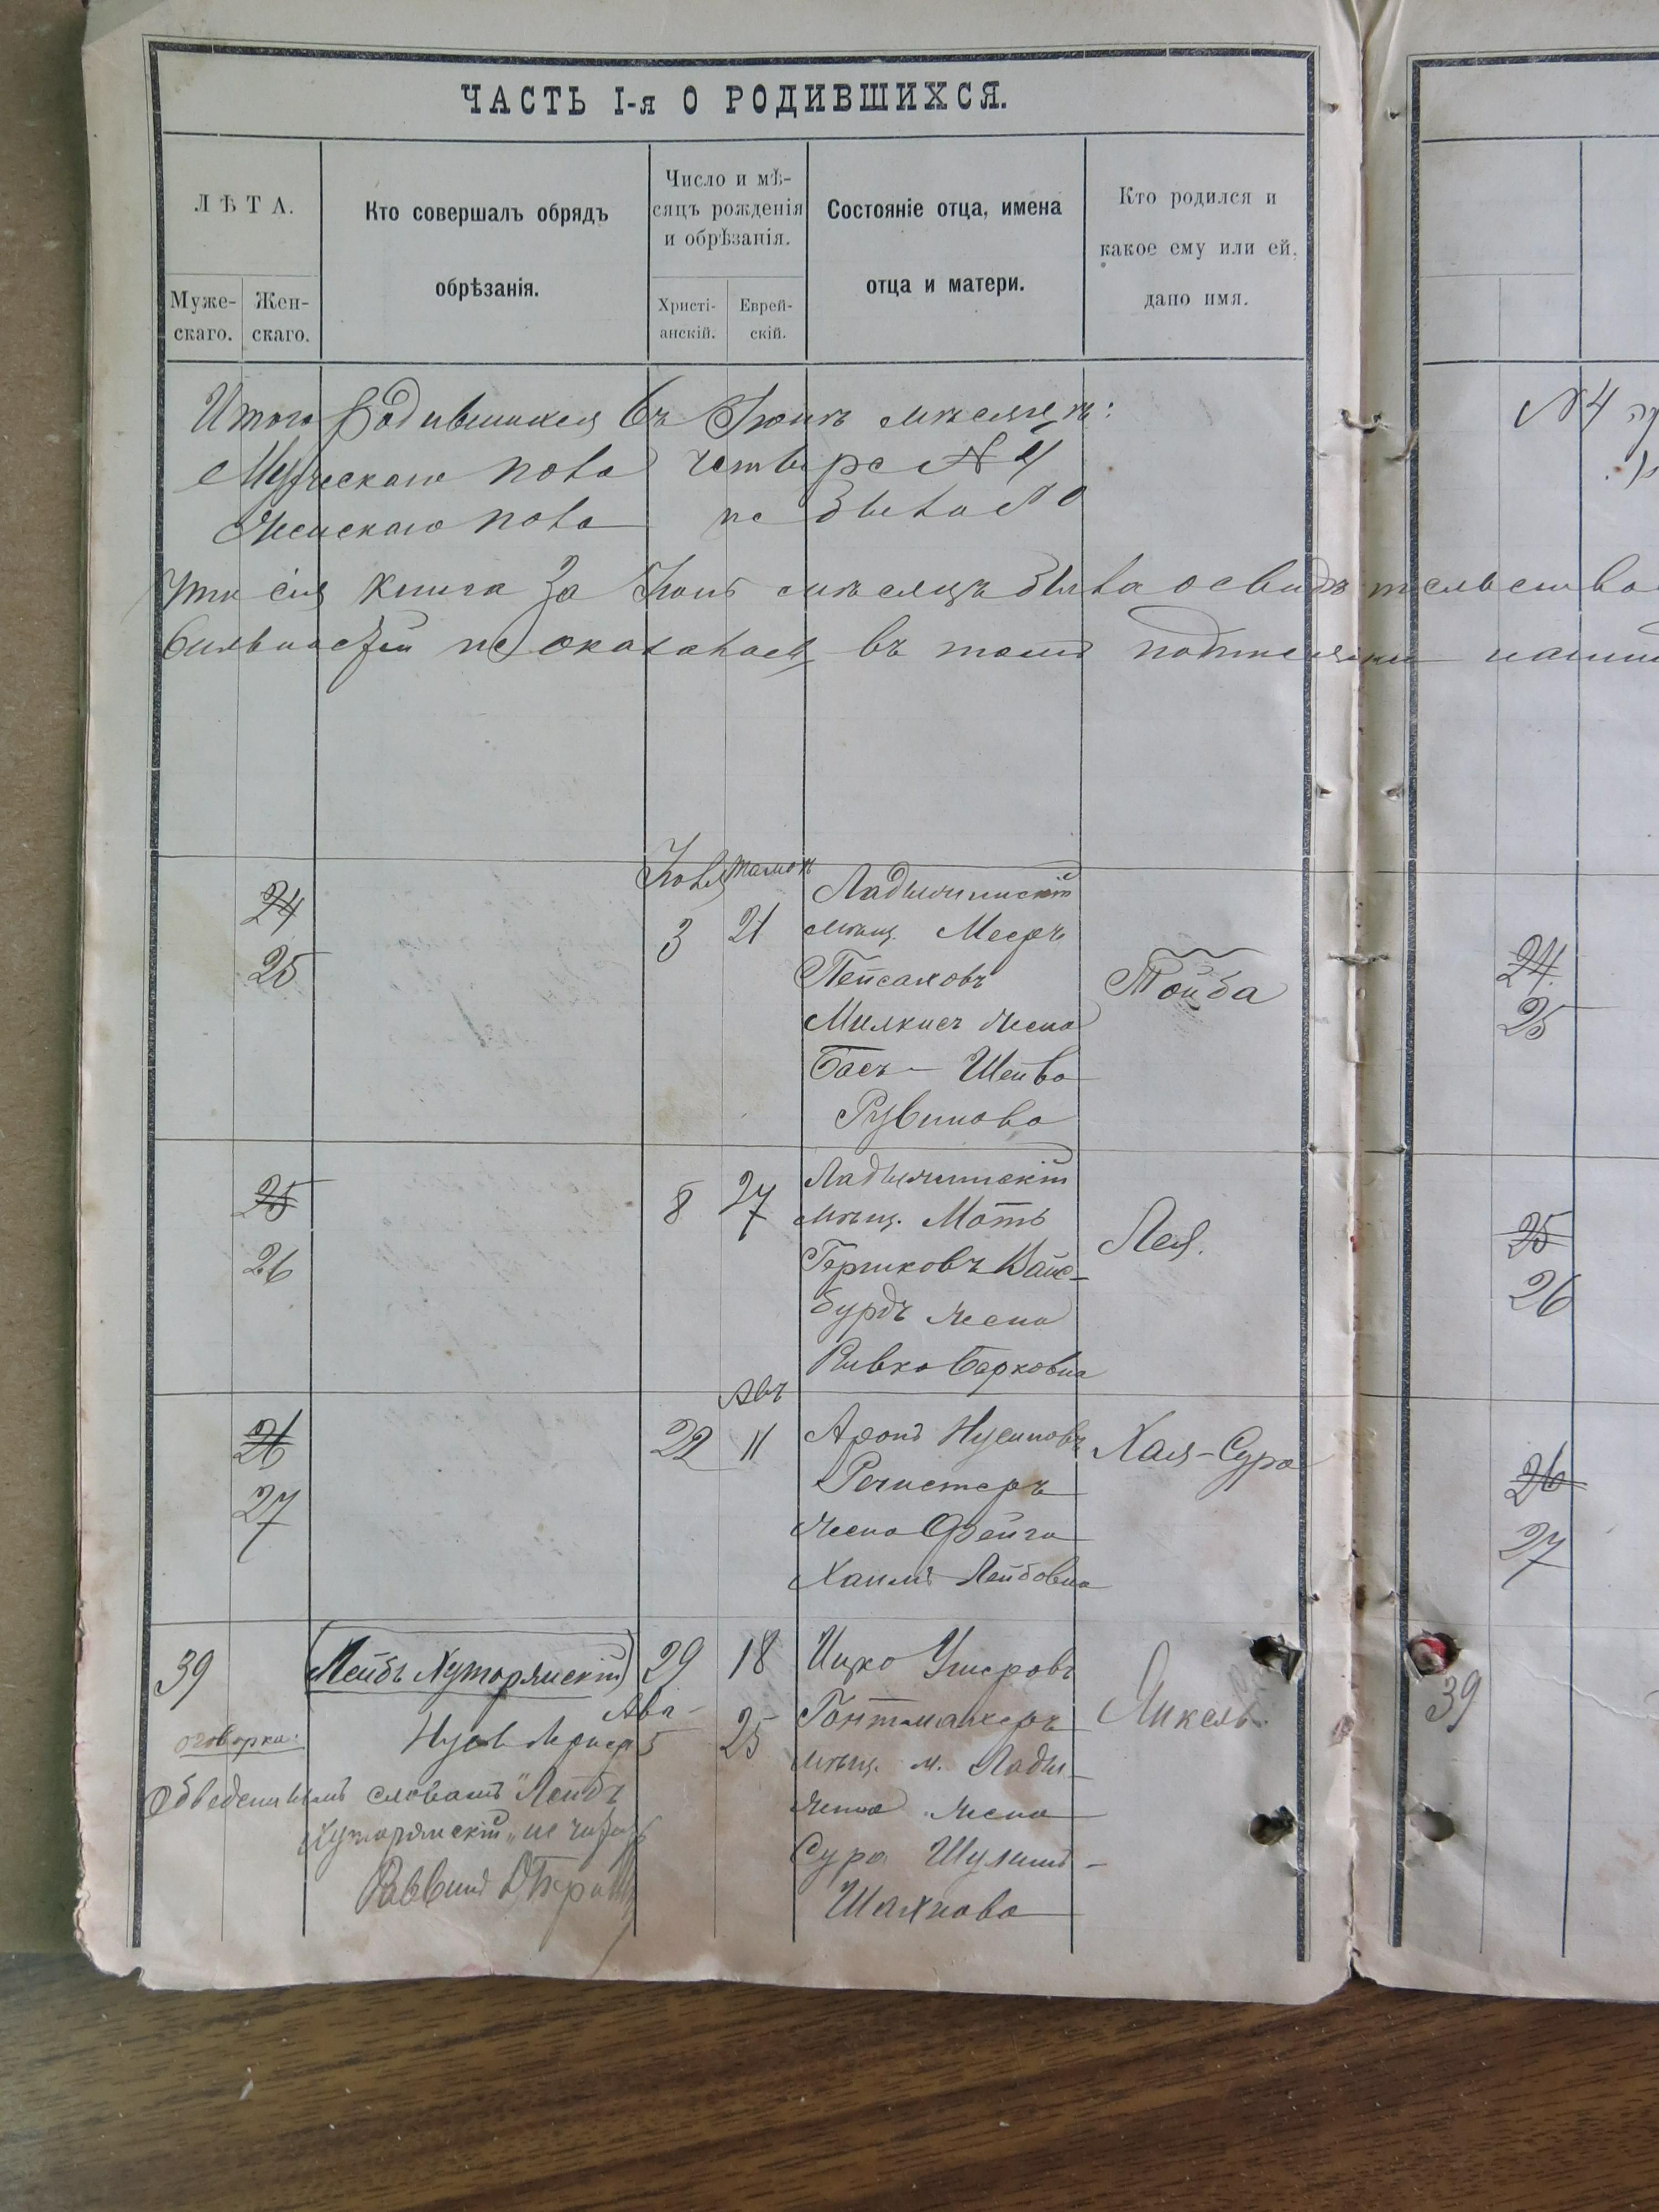 ЧАСТЬ I-я О РОДИВШИХСЯ.
ЛѢТА.
Муже-
скаго.
Жен-
скаго.
Кто совершалъ обрядъ
обрѣзанія.
Число и мѣ-
сяцъ рожденія
и обрѣзанія.
Христі-
анскій.
Еврей-
скій.
Состояніе отца, имена
отца и матери.
Кто родился и
какое ему или ей,
дано имя.
Итого родившихся въ Іюнѣ мѣсяцѣ:
Мужескаго пола четыре № 4
Женскаго пола не было № 0
№ 4
Что сія книга за Іюнь мѣсяцъ была освидѣтельство
оказалось въ томъ подписями нашими
Іюля
24
25
3
21
Ладыжинскій
мѣщ. Мееръ
Пейсаховъ
Милкисъ жена
Бася - Шейва
Рувинова
Тойба
24
25
25
26
8
27
Ладыжинскій
мѣщ. Моть
Гершковъ Вайс-
бурдъ жена
Ривка Берковна
Лея.
25
26
Авъ
26
27
22
11
Аронъ Нусиновъ
Регистеръ
жена Фейга
Хаимъ-Лейбовна
Хая-Сура
26
27
39
Лейбъ Хуторянскій
29
18
Ицко Ушеровъ
Гонтмахеръ
мѣщ. м. Лады-
жина жена
Сура Шулимъ-
Шахнова
Микель.
39
Ав.
5
25
оговорка:
Обведеннымъ словамъ "Лейбъ
Хуторянскій" не
Раввинъ